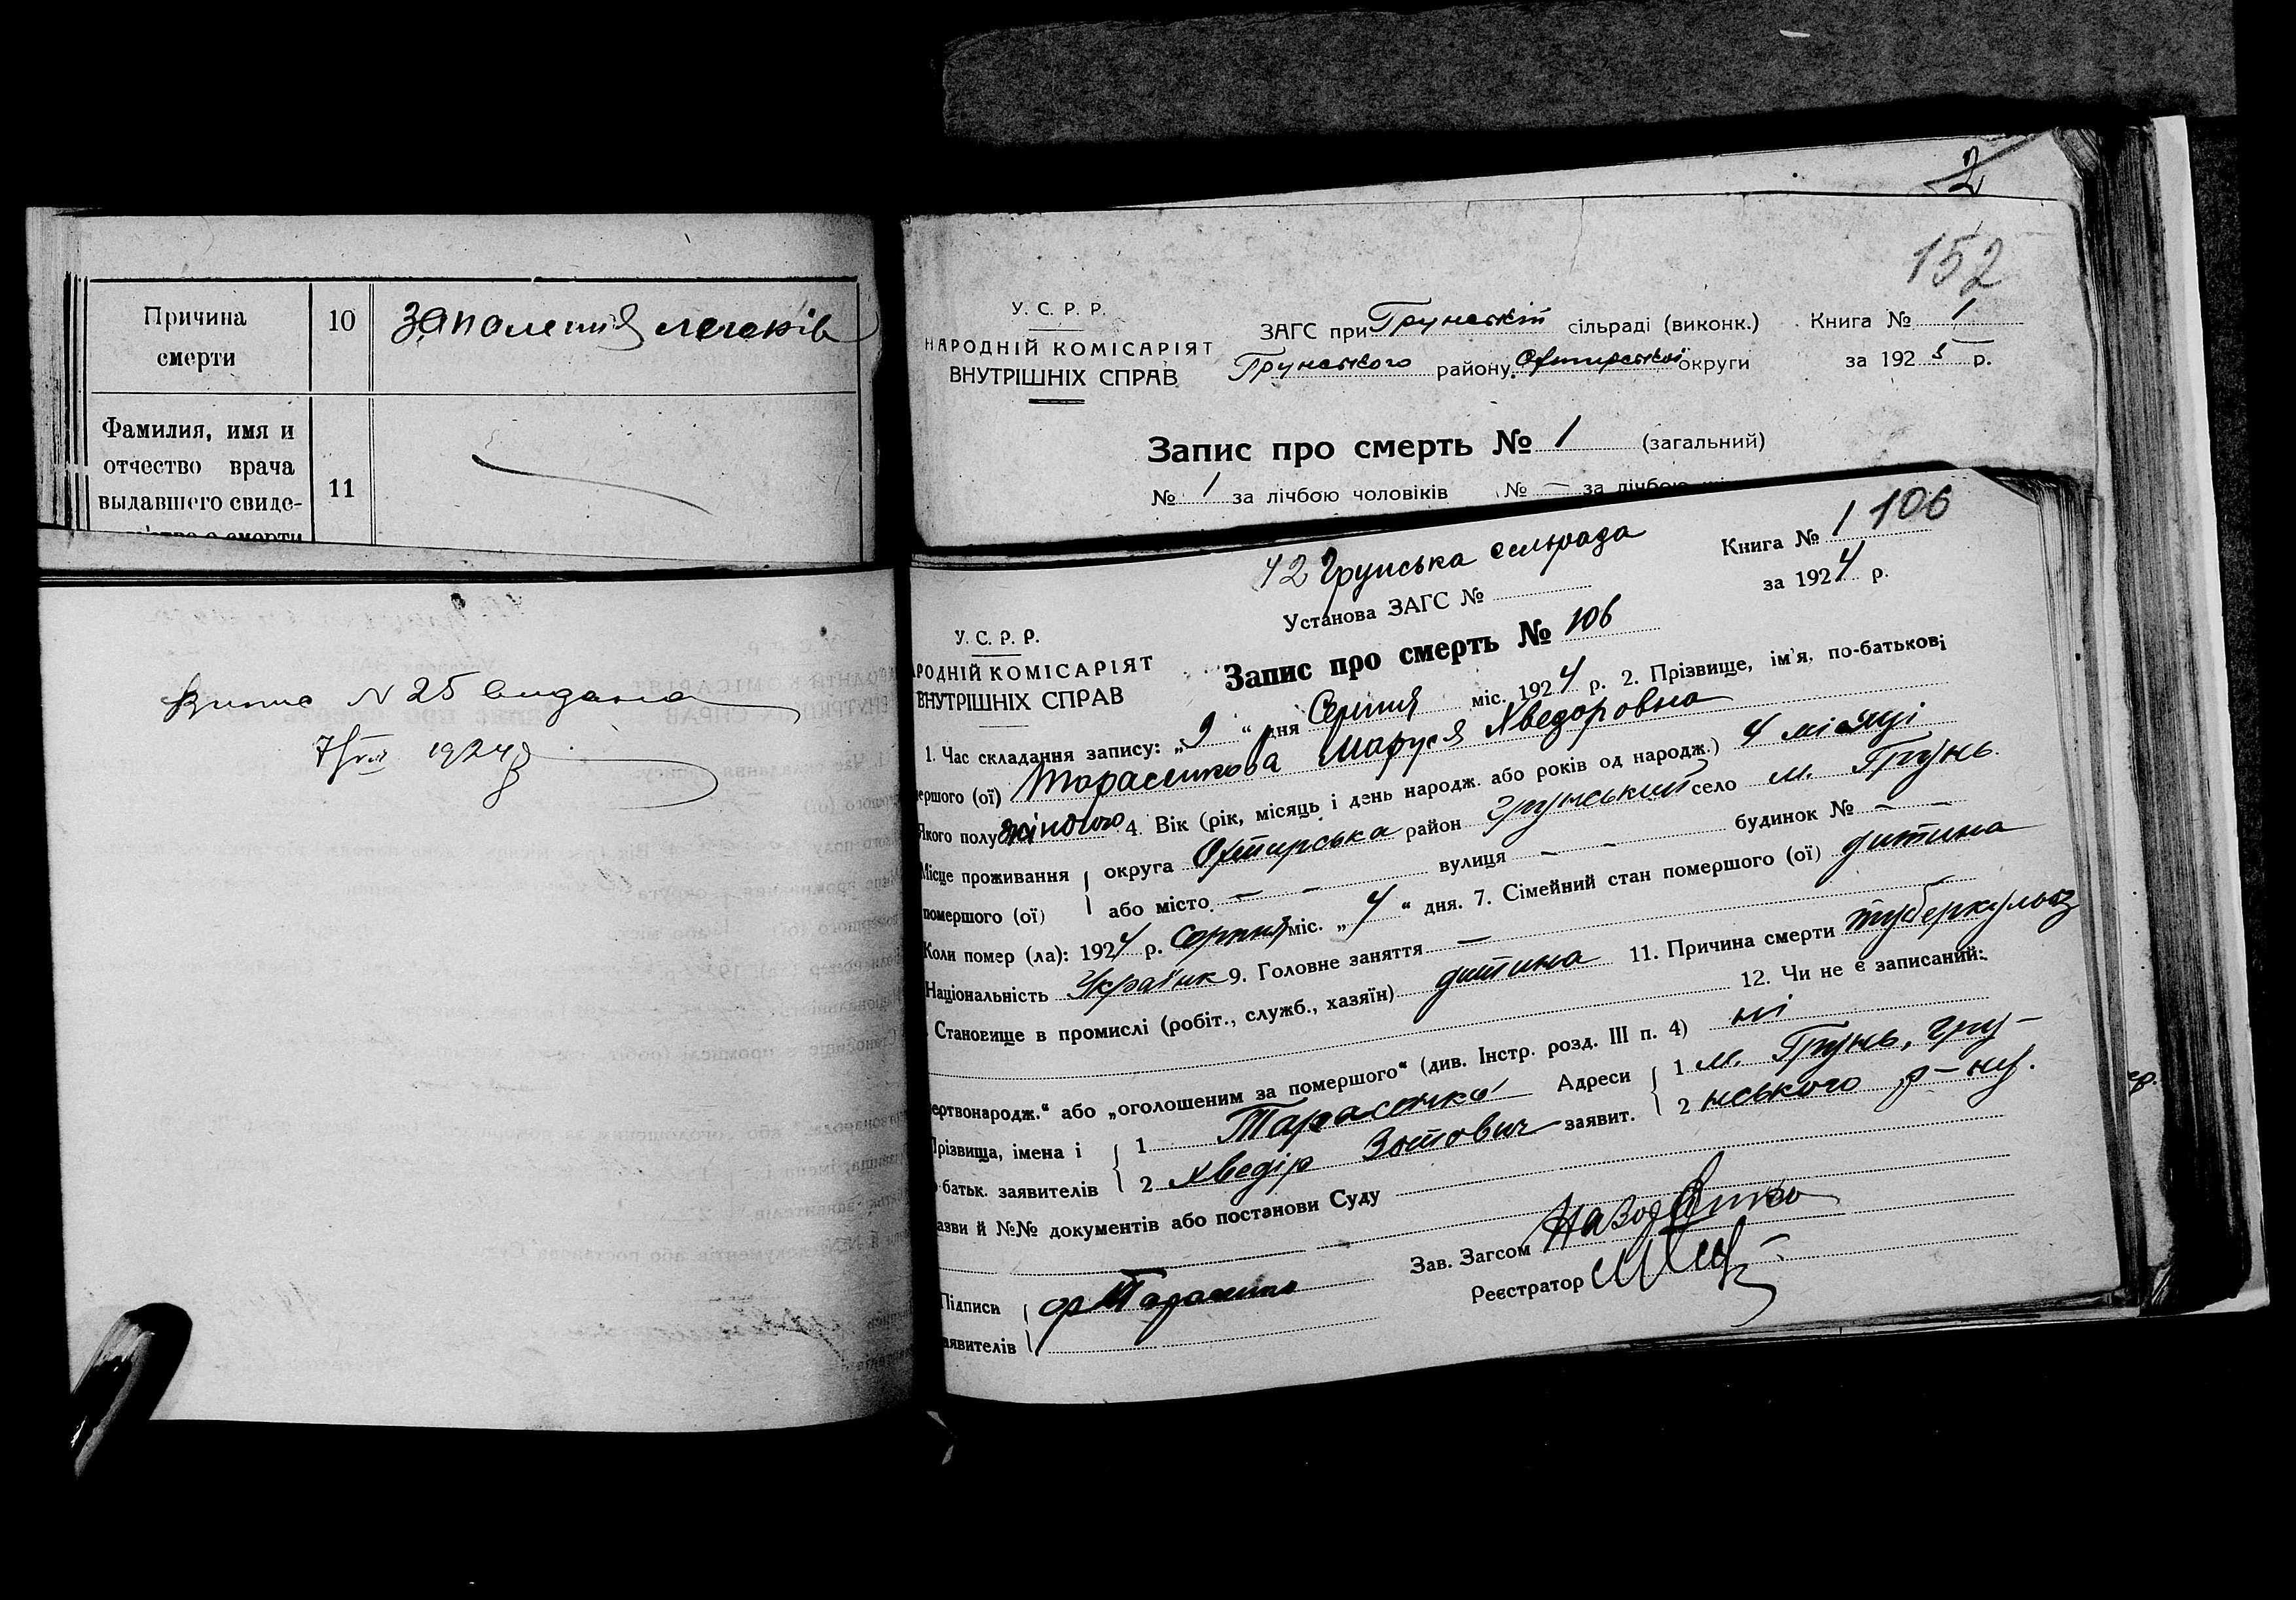 Причина смерти
10
Запаления легенів
Фамилия, имя и
отчество врача
выдавшего свиде-
11
Випис N 25 видана
7/VIII 1924 р
2
152
У. С. Р. Р.
НАРОДНІЙ КОМІСАРІЯТ
ВНУТРІШНІХ СПРАВ
ЗАГС при Грунській сільраді (виконк.) Книга № 1
Грунського району Охтирської округи за 1925 р.
Запис про смерть № 1 (загальний)
№ 1 за лічбою чоловіків № — за лічбою
42 Грунська сельрада
Книга № 1 106
Установа ЗАГС №
за 1924 р.
У. С. Р. Р.
РОДНІЙ КОМІСАРІЯТ
ВНУТРІШНІХ СПРАВ
Запис про смерть № 106
1. Час складання запису: „ 9 “ дня Серпня міс. 1924 р. 2. Прізвище, ім'я, по-батькові
ершого (ої) Тарасенкова Маруся Хведоровна
Якого полу жіночого 4. Вік (рік, місяць і день народж. або років од народж.) 4 місяці
Місце проживання округа Охтирська район Грунський село м. Грунь.
помершого (ої) або місто — — вулиця — — будинок № — —
Коли помер (ла): 1924 р. Серпня міс. „ 4 “ дня. 7. Сімейний стан помершого (ої) дитина
Національність Українк 9. Головне заняття —
Становище в промислі (робіт., служб., хазяїн) дитина 11. Причина смерти туберкульоз
12. Чи не є записаний:
ертвонародж.“ або „оголошеним за помершого“ (див. Інстр. розд. III п. 4) ні
Прізвища, імена і 1 Тарасенко Адреси 1 м. Грунь, Гру-
батьк. заявителів 2 Хведір Зотович заявит. 2 нського р-ну.
азви й №№ документів або постанови Суду
Зав. Загсом
Реєстратор
Підписи Ф Тарасенко
аявителів